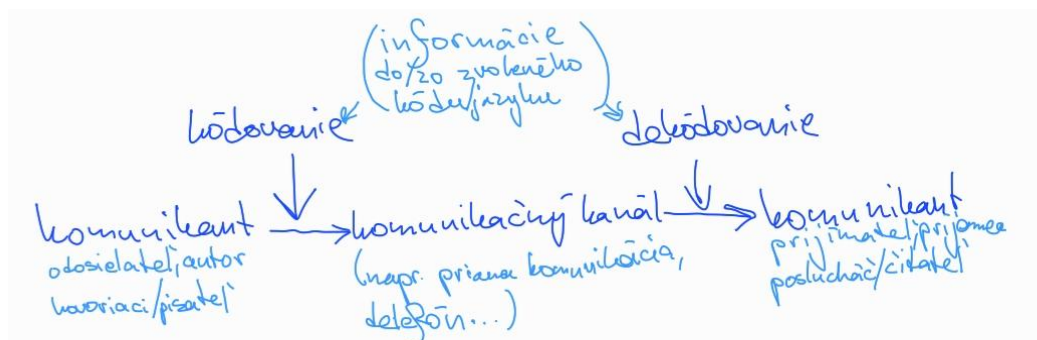 (informácie
do/zo zvoleného
kódu/jazyku)
kódovanie
dekódovanie
komunikant
odosielateľ, autor
hovoriaci/pisateľ
komunikačný kanál
(napr. priama komunikácia,
telefón...)
komunikant
prijímateľ, príjemca
poslucháč/čitateľ